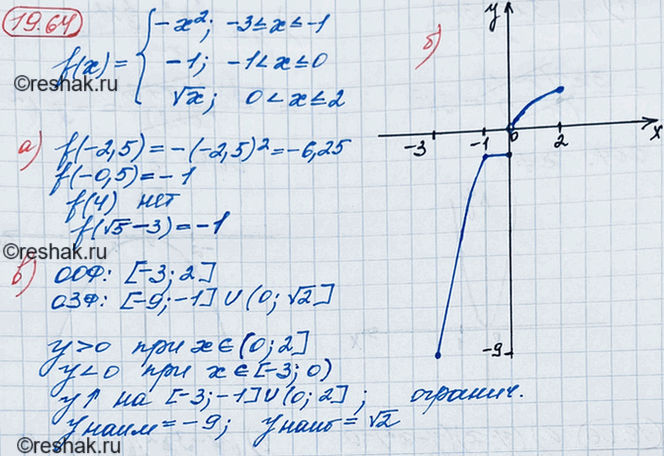 19.64
f(x) = { -x²; -3≤x≤-1
-1; -1<x≤0
√x; 0<x≤2
©reshak.ru
а) f(-2,5) = -(-2,5)² = -6,25
f(-0,5) = -1
f(4) нет
f(√5-3) = -1
©reshak.ru
б)
y
-3 -1 0 2 x
-9
в) ООФ: [-3; 2]
ОЗФ: [-9; -1] ∪ (0; √2]
y>0 при x∈(0; 2]
y<0 при x∈[-3; 0)
y↑ на [-3; -1] ∪ (0; 2]; огранич.
y наим = -9; y наиб = √2
©reshak.ru